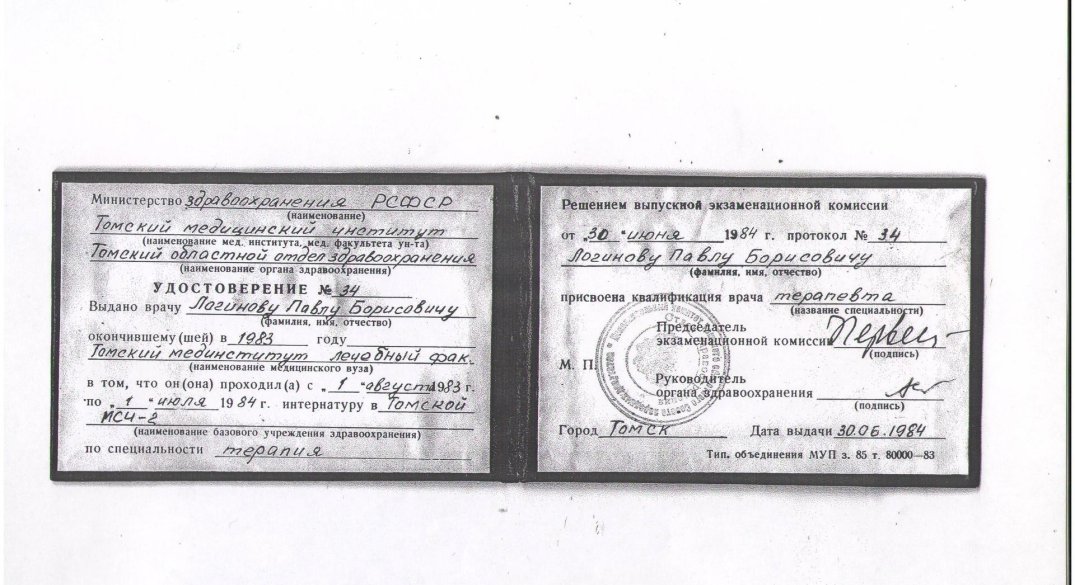 Министерство здравоохранения РСФСР
(наименование)
Томский медицинский институт
(наименование мед. института, мед. факультета ун-та)
Томский областной отдел здравоохранения
(наименование органа здравоохранения)
УДОСТОВЕРЕНИЕ № 34
Выдано врачу Логинову Павлу Борисовичу
(фамилия, имя, отчество)
окончившему (шей) в 1983 году
Томский мединститут лечебный фак.
(наименование медицинского вуза)
в том, что он (она) проходил (а) с „1 “ август 1983 г.
по „1 “ июля 1984 г. интернатуру в Томской
МСЧ-2
(наименование базового учреждения здравоохранения)
по специальности терапия
Решением выпускной экзаменационной комиссии
от „30 “ июня 1984 г. протокол № 34
Логинову Павлу Борисовичу
(фамилия, имя, отчество)
присвоена квалификация врача терапевта
(название специальности)
Председатель
экзаменационной комиссии
(подпись)
М. П.
Руководитель
органа здравоохранения
(подпись)
Город Томск Дата выдачи 30.06.1984
Тип. объединения МУП з. 85 т. 80000—83